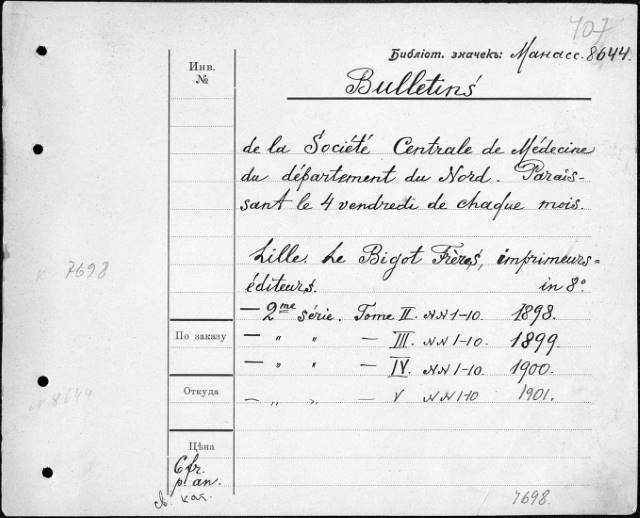 407
Библіот. значекъ: Манасс. 8644.
Инв.
№
Bulletins
de la Société Centrale de Médecine
du département du Nord. Parais-
sant le 4 vendredi de chaque mois.
Lille. Le Bigot Frères, imprimeurs=
éditeurs. in 8º
к 7698
— 2me série. Tome II. NN 1-10. 1898.
По заказу
— " " — III. NN 1-10. 1899.
— " " — IV. NN 1-10. 1900.
Откуда
— " " — V NN 1-10 1901.
8644
Цѣна
6 fr.
p. an.
св. кат.
7698.